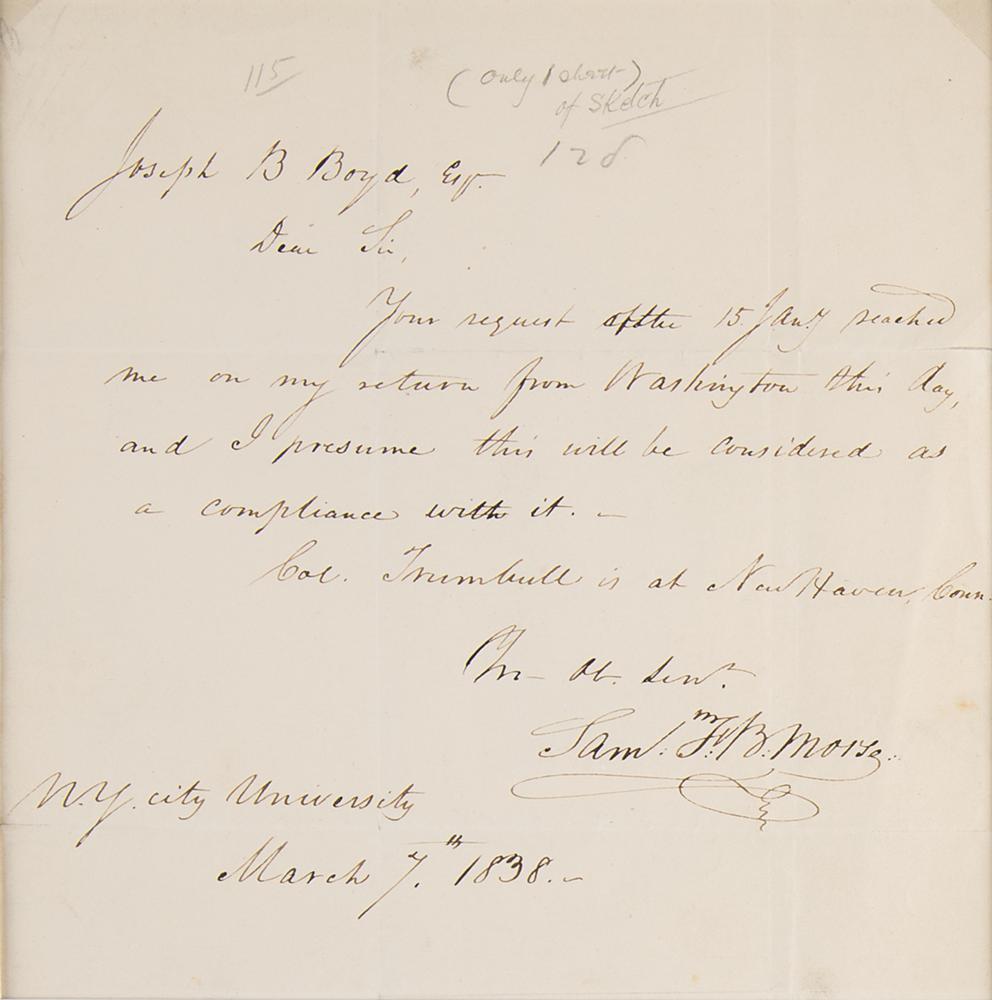 115
(only 1 sheet)
of Sketch
128
Joseph B Boyd, Esqr.
Dear Sir,
Your request of the 15. Jany reached
me on my return from Washington this day,
and I presume this will be considered as
a compliance with it. –
Col. Trumbull is at New Haven, Conn.
Yr – Ob. Servt.
Saml. F. B. Morse.
N.Y. city University
March 7.th 1838. –